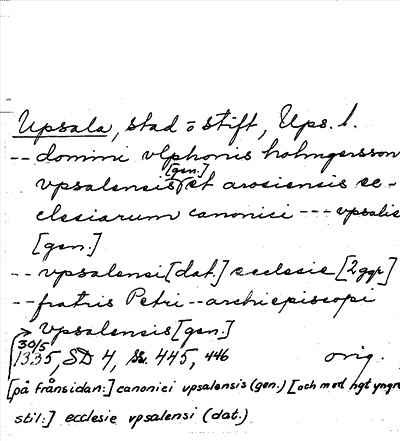 Upsala, stad o stift, Ups. l.
-- domini vlphonis holmgersson
[gen.]
vpsalensis et arosiensis ec-
clesiarum canonici --- vpsalis
[gen.]
-- vpsalensi [dat.] ecclesie [2 ggr]
-- fratris Petri -- archiepiscopi
vpsalensis [gen.]
30/5
1335, SD 4, ss. 445, 446 orig.
[på frånsidan:] canonici vpsalensis (gen.) [och med ngt yngre
stil:] ecclesie vpsalensi (dat.)